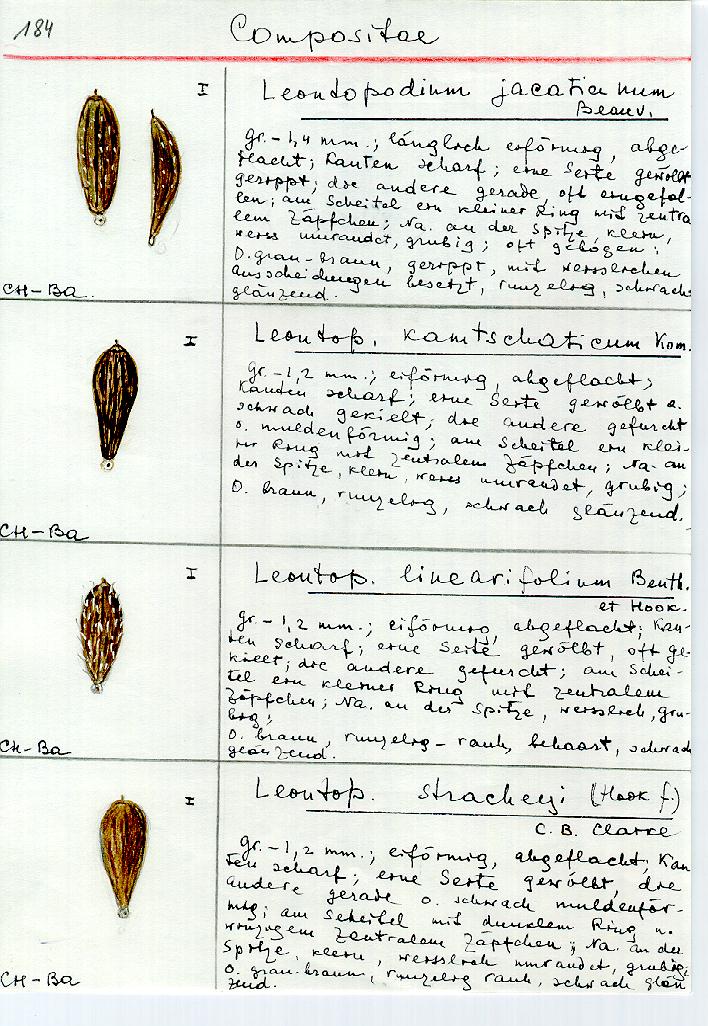 184
Compositae
I
Leontopodium jacoticunum
Beauv.
gr. – 1,4 mm.; länglich eiförmig, abge-
flacht; Kanten scharf; eine Seite gewölbt
gerippt; die andere gerade, oft eingefal-
len; am Scheitel ein kleiner Ring mit zentra
lem Zäpfchen; Na. an der Spitze, klein,
weiss umrandet, grubig; oft gebogen;
O. grau-braun, gerippt, mit weisslichen
Ausscheidungen besetzt, runzelig, schwach
glänzend.
CH-Ba.
I
Leontop. kamtschaticum Kom.
gr. – 1,2 mm.; eiförmig, abgeflacht;
Kanten scharf; eine Seite gewölbt o.
schwach gekielt; die andere gefurcht
o. muldenförmig; am Scheitel ein klei-
ner Ring mit zentralem Zäpfchen; Na. an
der Spitze, klein, weiss umrandet, grubig;
O. braun, runzelig, schwach glänzend.
CH-Ba
I
Leontop. linearifolium Benth.
et Hook.
gr. – 1,2 mm.; eiförmig, abgeflacht; Kan-
ten scharf; eine Seite gewölbt, oft ge-
kielt; die andere gefurcht; am Schei-
tel ein kleiner Ring mit zentralem
Zäpfchen; Na. an der Spitze, weisslich, gru-
big;
O. braun, runzelig – rauh, behaart, schwach
glänzend.
CH-Ba
I
Leontop. stracheyi (Hook f.)
C. B. Clarke
gr. – 1,2 mm.; eiförmig, abgeflacht, Kan
ten scharf; eine Seite gewölbt, die
andere gerade o. schwach muldenför-
mig; am Scheitel mit dunklem Ring u.
winzigem zentralem Zäpfchen; Na. an der
Spitze, klein, weisslich umrandet, grubig;
O. grau-braun, runzelig rauh, schwach glän
zend.
CH-Ba